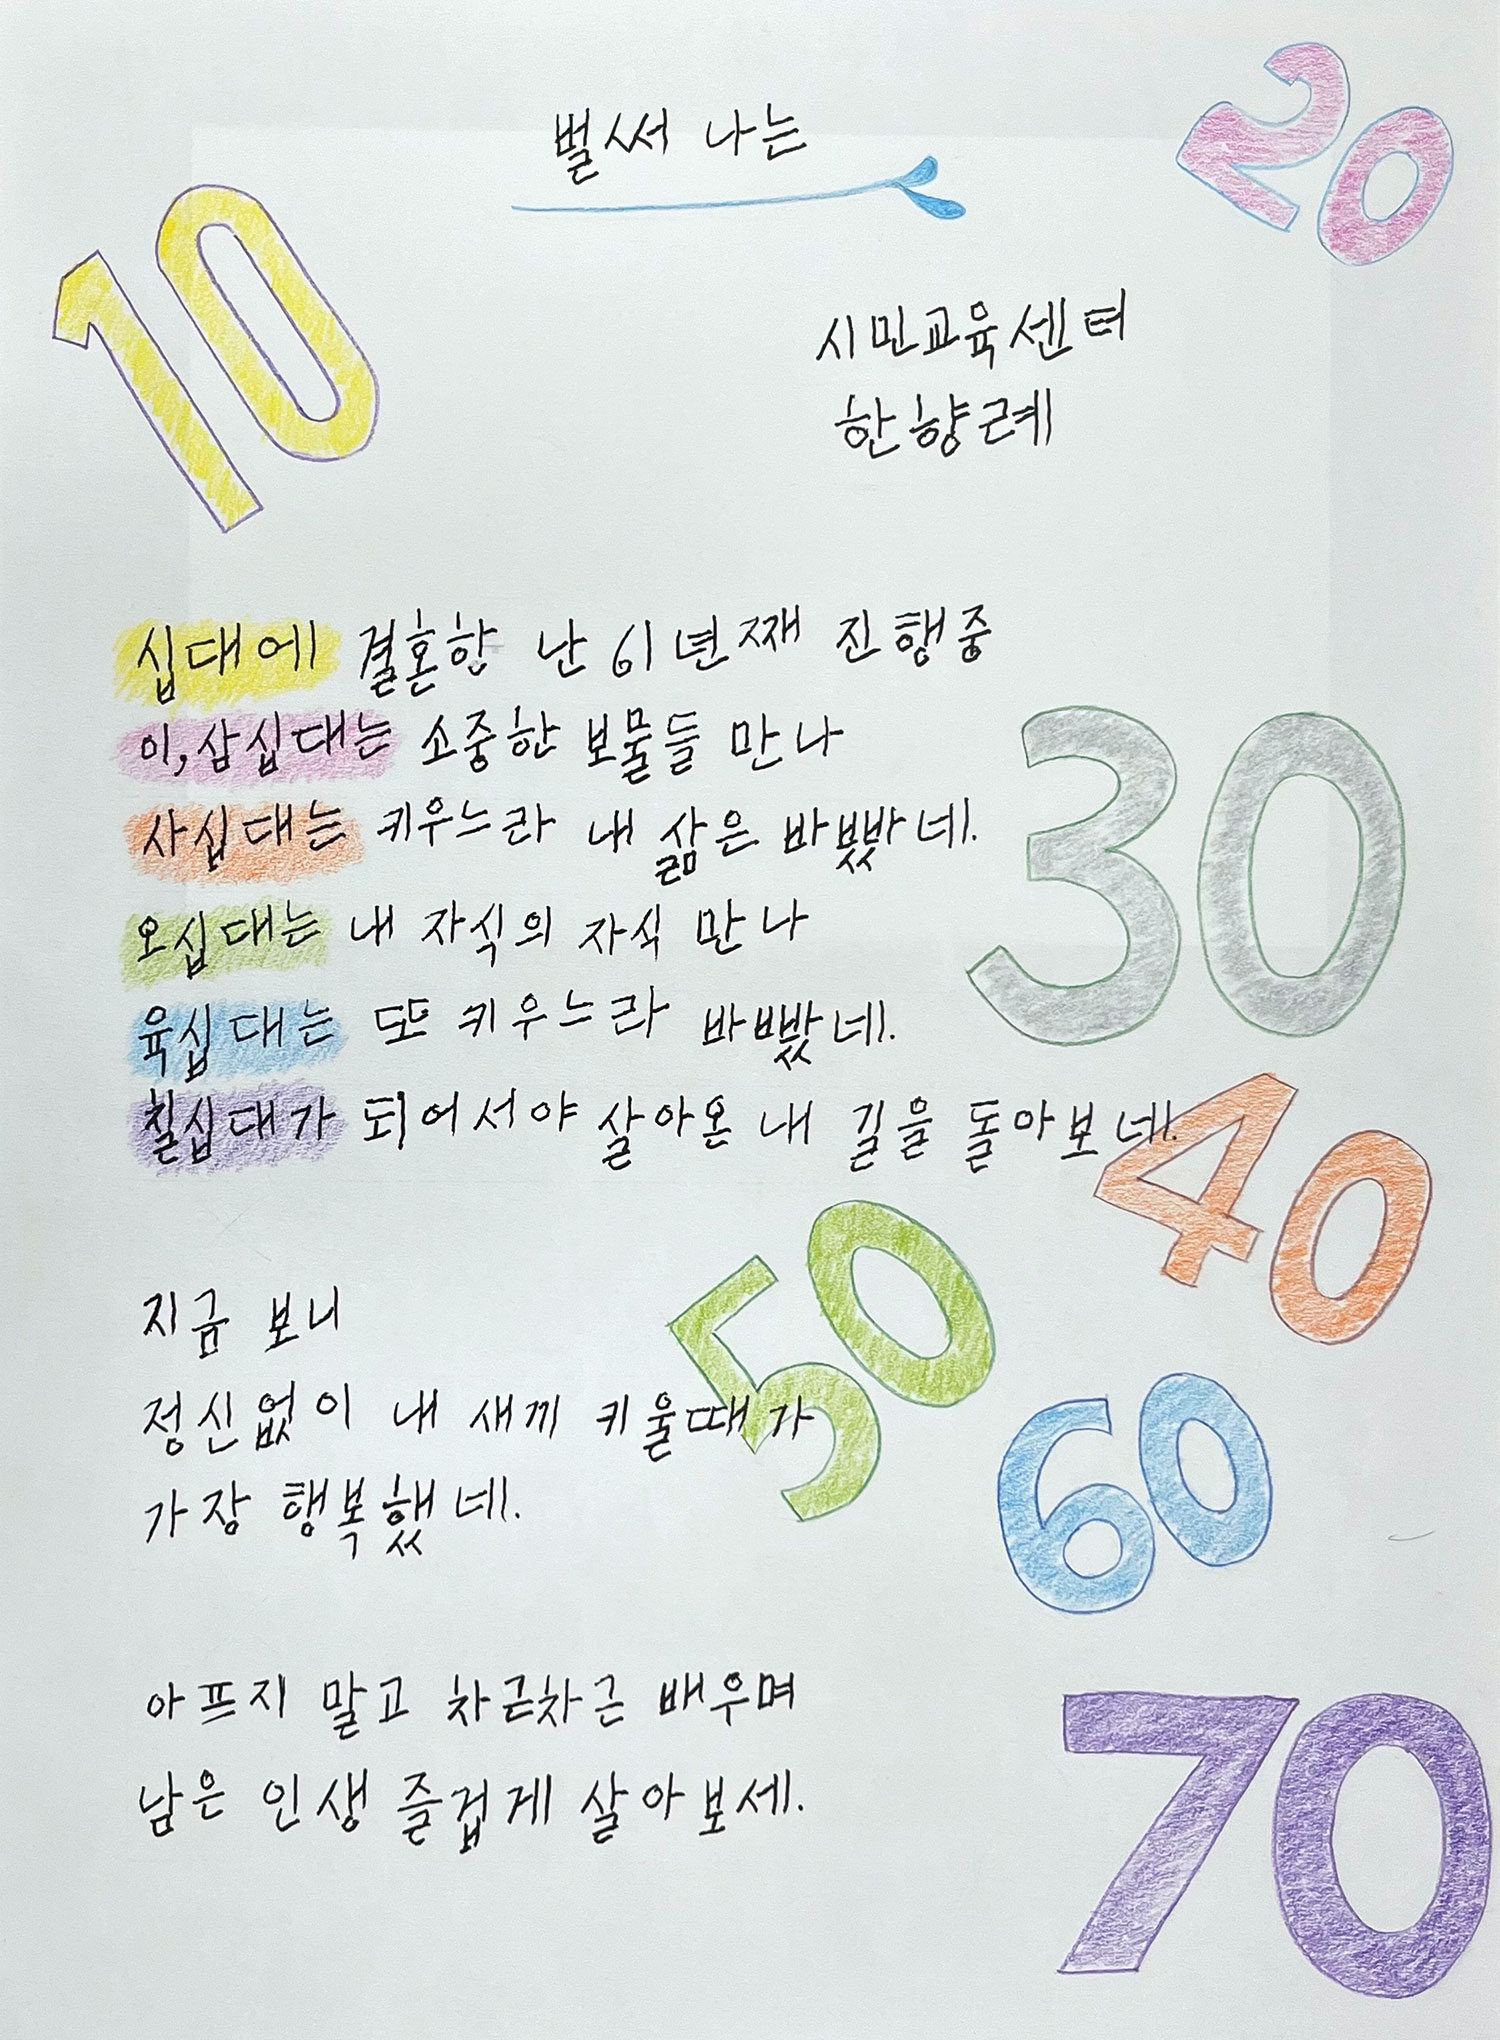 벌써 나는
20
10
시민교육센터
한향례
십대에 결혼한 난 61년째 진행중
이,삼십대는 소중한 보물들 만나
사십대는 키우느라 내 삶은 바빴네.
오십대는 내 자식의 자식 만나
육십대는 또 키우느라 바빴네.
칠십대가 되어서야 살아온 내 길을 돌아보네.
30
40
50
지금 보니
정신없이 내 새끼 키울때가
가장 행복했네.
60
아프지 말고 차근차근 배우며
남은 인생 즐겁게 살아보세.
70